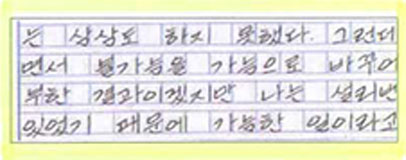 는 상상도 하지 못했다. 그런데
면서 불가능을 가능으로 바꾸어
부한 결과이겠지만 나는 설리번
있었기 때문에 가능한 일이라고